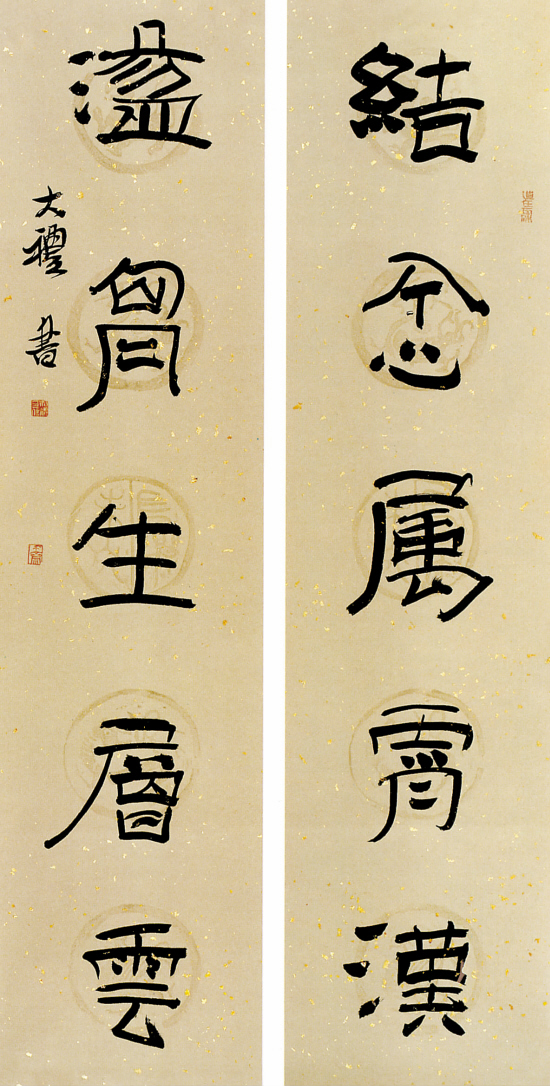 結念属霄漢
盪胷生層雲
大禮書